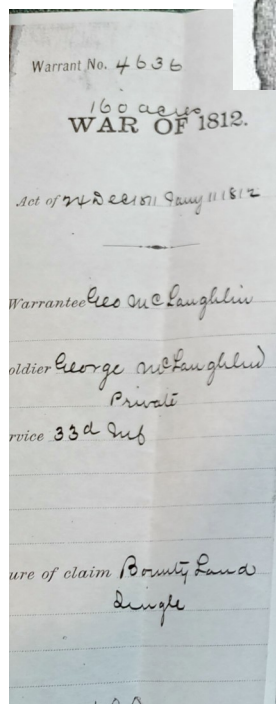 Warrant No. 4636
160 acres
WAR OF 1812.
Act of 24 Dec 1811 Jany 11 1812
Warrantee Geo McLaughlin
oldier George McLaughlin
Private
rvice 33d Inf
ure of claim Bounty Land
Single